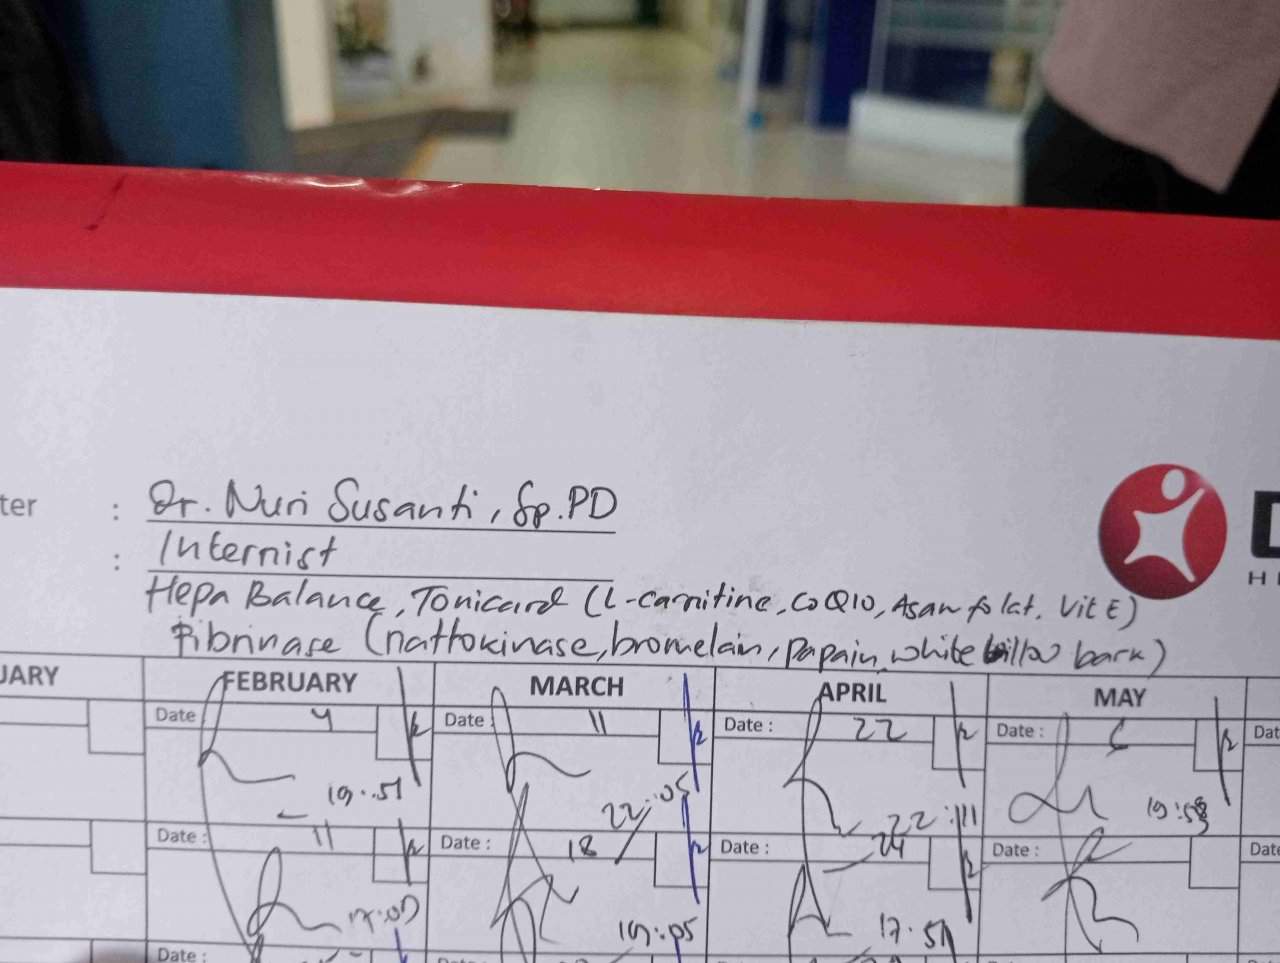 ter : Dr. Nuri Susanti, Sp.PD
: Internist
Hepa Balance, Tonicard (L-carnitine, CoQ10, Asam folat, Vit E)
Fibrinase (nattokinase, bromelain, papain, white willow bark)
UARY FEBRUARY MARCH APRIL MAY
Date 4 Date : 11 Date : 22 Date : 6 Dat
19:51 22:05 22:11 19:58
Date : 11 Date : 18 Date : 24 Date : Date
17:07 19:05 17.51
Date :
D
H